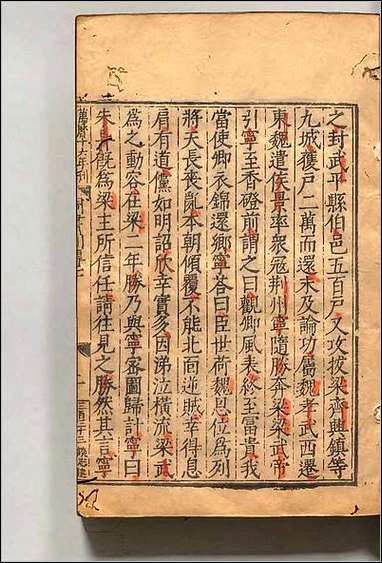 之封武平縣伯邑五百戶又攻拔梁齊興鎮等
九城獲戶二萬而還未及論功屬魏孝武西遷
東魏遣侯景率衆冦荆州寧隨勝奔梁梁武帝
引寧至香磴前謂之曰觀卿風表終至富貴我
當使卿衣錦還鄉寧答曰臣世荷魏恩位爲列
將天長喪亂本朝傾覆不能北面逆賊幸得息
肩有道儻如明詔欣幸實多因涕泣横流梁武
爲之動容在梁二年勝乃與寧密圖歸計寧曰
朱异既爲梁主所信任請往見之勝然其言寧